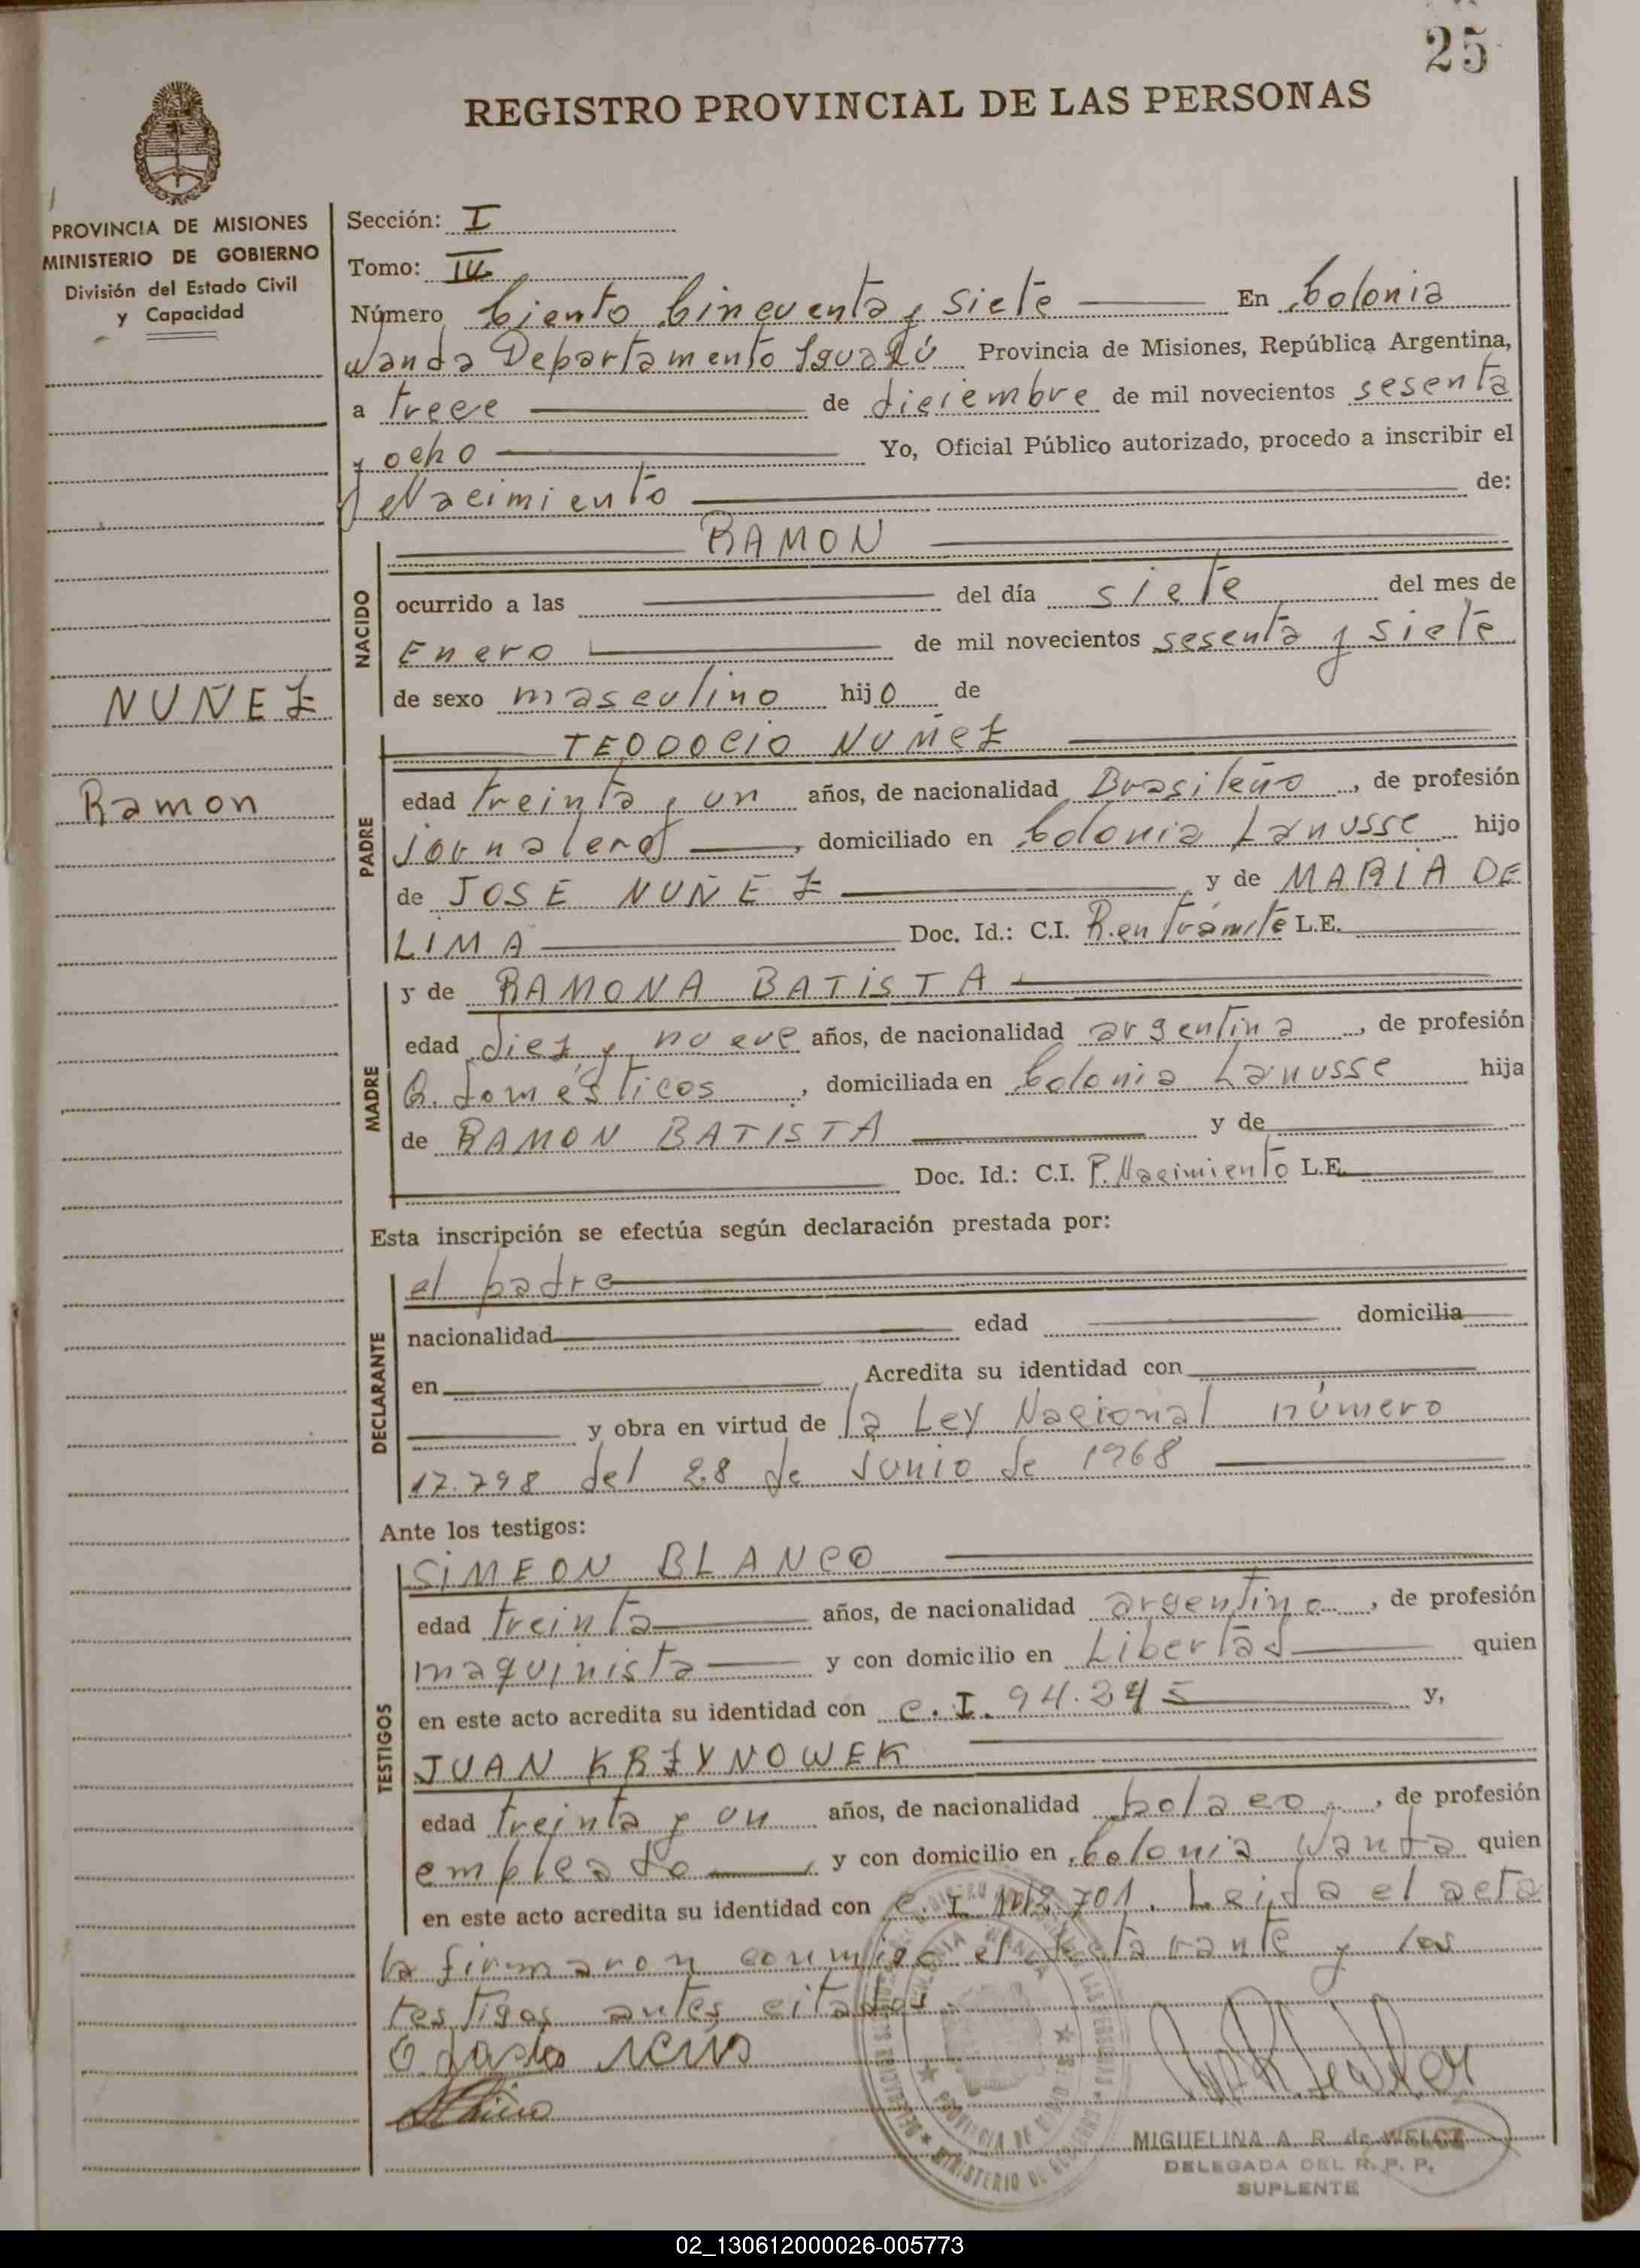 25
REGISTRO PROVINCIAL DE LAS PERSONAS
PROVINCIA DE MISIONES
MINISTERIO DE GOBIERNO
División del Estado Civil
y Capacidad
NUÑEZ
Ramon
Sección: I
Tomo: IV
Número Ciento Cincuenta y siete En Colonia
Wanda Departamento Iguazú Provincia de Misiones, República Argentina,
a trece de diciembre de mil novecientos sesenta
y ocho Yo, Oficial Público autorizado, procedo a inscribir el
Nacimiento de:
NACIDO
RAMON
ocurrido a las del día siete del mes de
Enero de mil novecientos sesenta y siete
de sexo masculino hijo de
PADRE
TEODOCIO NUÑEZ
edad treinta y un años, de nacionalidad Brasileño, de profesión
jornalero, domiciliado en Colonia Lanusse hijo
de JOSE NUÑEZ y de MARIA DE
LIMA Doc. Id.: C.I. R. en trámite L.E.
MADRE
y de RAMONA BATISTA
edad diez y nueve años, de nacionalidad argentina, de profesión
Q. domésticos, domiciliada en Colonia Lanusse hija
de RAMON BATISTA y de
Doc. Id.: C.I. P. Nacimiento L.E.
Esta inscripción se efectúa según declaración prestada por:
DECLARANTE
el padre
nacionalidad edad domicilia
en Acredita su identidad con
y obra en virtud de la Ley Nacional número
17.798 del 28 de Junio de 1968
Ante los testigos:
TESTIGOS
SIMEON BLANCO
edad treinta años, de nacionalidad argentino, de profesión
maquinista y con domicilio en Libertad quien
en este acto acredita su identidad con C.I. 94.245 y,
JUAN KRZYNOWEK
edad treinta y un años, de nacionalidad polaco, de profesión
empleado y con domicilio en Colonia Wanda quien
en este acto acredita su identidad con C.I. Leida el acta
la firmaron conmigo el declarante y los
testigos antes citados.
MIGUELINA A. R. de WELCZ
DELEGADA DEL R. P. P.
SUPLENTE
02_130612000026-005773